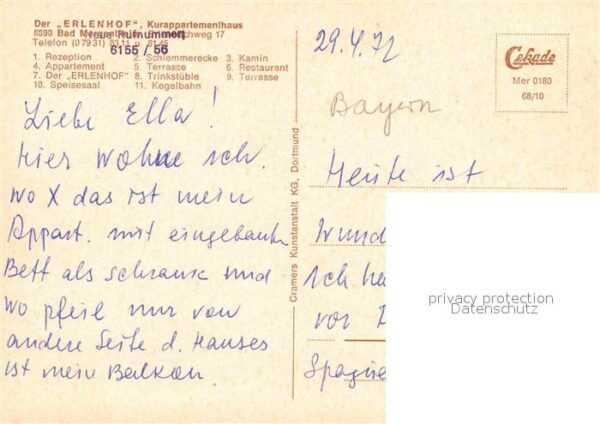 Der „ERLENHOF", Kurappartementhaus
6990 Bad Mergentheim, Bismarckweg 17
Neue Rufnummer:
Telefon (0 79 31) 83 11 u. 81 45
6155 / 56
1. Rezeption 2. Schlemmerecke 3. Kamin
4. Appartement 5. Terrasse 6. Restaurant
7. Der „ERLENHOF" 8. Trinkstüble 9. Terrasse
10. Speisesaal 11. Kegelbahn
Liebe Ella!
Hier wohne ich.
wo X das ist mein
Appart. mit eingebauten
Bett als schrank und
wo pfeil nur von
andere Seite d. Hauses
ist mein Balkon.
Cramers Kunstanstalt KG, Dortmund
29.4.72
Cekade
Mer 0180
68/10
Bayern
Heute ist
Wund
Ich
vor
Spazie
privacy protection
Datenschutz